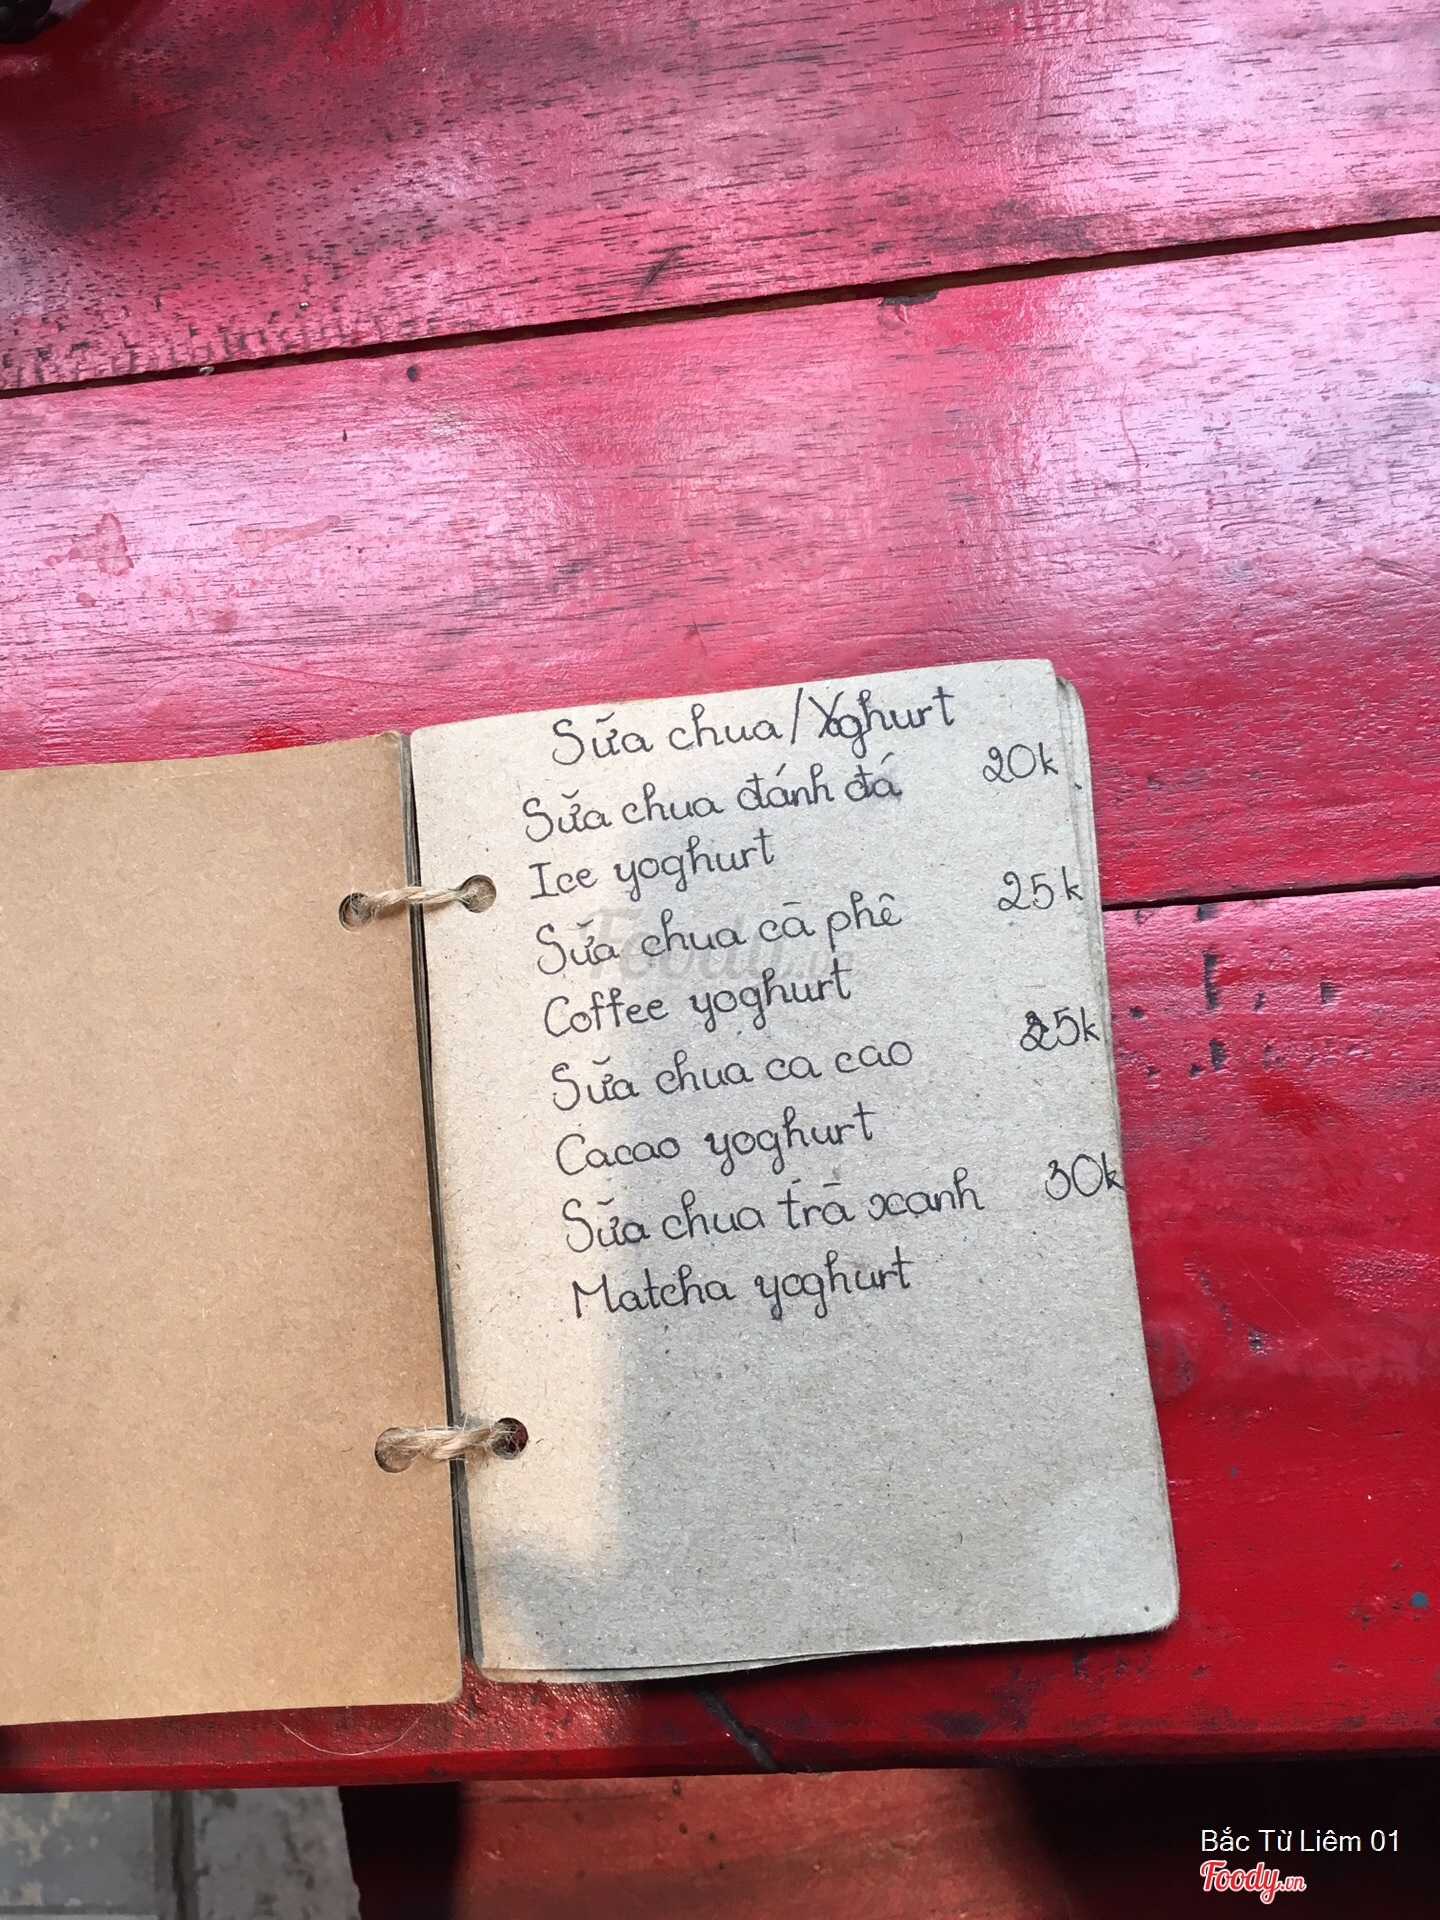 Sữa chua/Yoghurt
Sữa chua đánh đá 20k
Ice yoghurt
Sữa chua cà phê 25k
Coffee yoghurt
Sữa chua ca cao 25k
Cacao yoghurt
Sữa chua trà xanh 30k
Matcha yoghurt
Foody.vn
Bắc Từ Liêm 01
Foody.vn